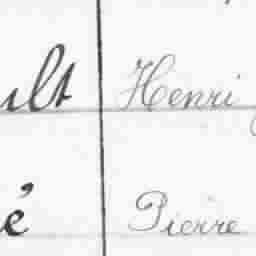 ult Henri
é Pierre